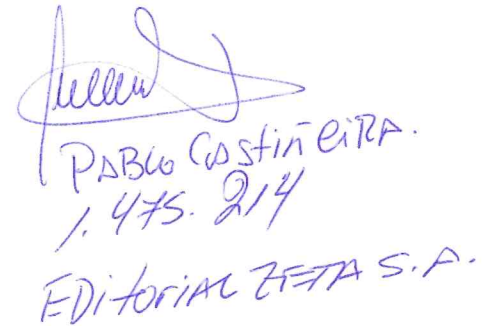 PABLO CASTIÑEIRA.
1.475.214
EDITORIAL ZETA S.A.